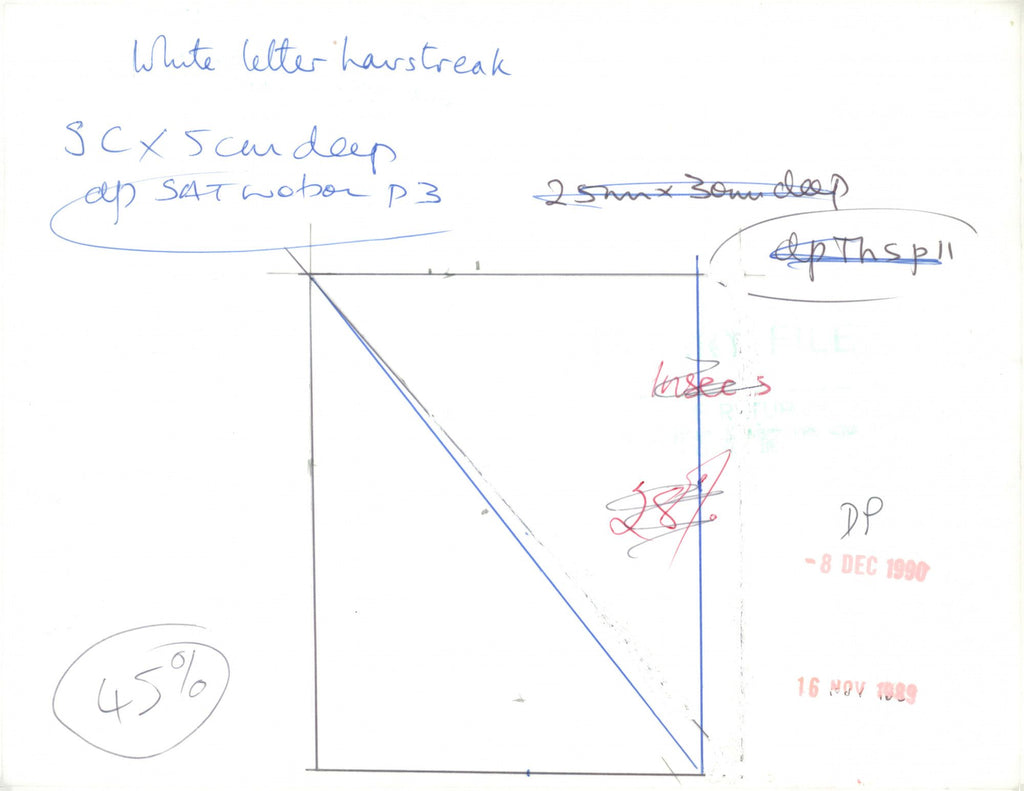 White letter hairstreak
SC X 5cm deep
dp SAT wobon P3
25mm x 30mm deep
dp Th S p 11
FILE
Insecs
28%
DP
-8 DEC 1990
16 NOV 1989
45%